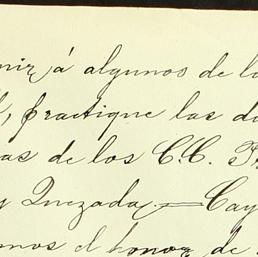 nir á algunos de l
, practique las d
as de los C.C. P
y Quezada,=Cay
mos el honor de